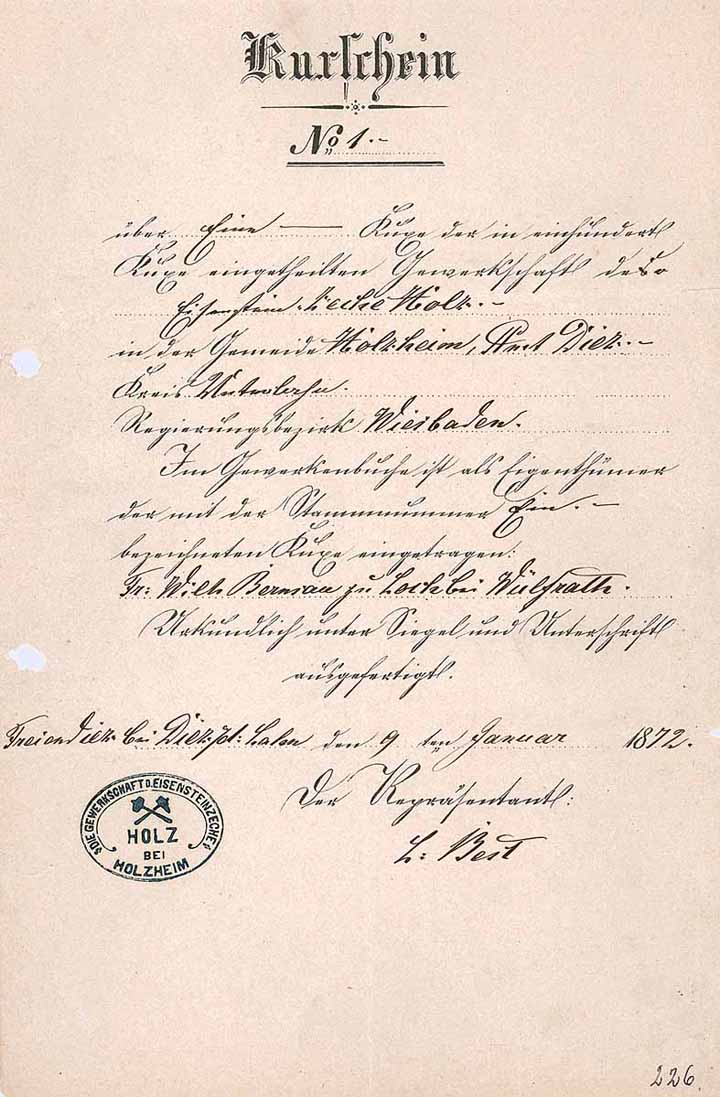 Kuxschein
No. 1.-
über Eine — Kuxe der in einhundert
Kuxe eingetheilten Gewerkschaft des
Eisenstein-Zeche Holz.-
in der Gemeide Holzheim, Amt Diez.-
Kreis Unterlahn.
Regierungsbezirk Wiesbaden.
Im Gewerkenbuche ist als Eigenthümer
der mit der Stammnummer Ein.-
bezeichneten Kuxe eingetragen:
Fr: Wilh Bernsau zu Loch bei Wülfrath.
Urkundlich unter Siegel und Unterschrift
ausgefertigt.
Freiendiez bei Diez, Lahn den 9 ten Januar 1872.
Der Repräsentant:
L: Best
DIE GEWERKSCHAFT D. EISENSTEINZECHE
HOLZ
BEI
HOLZHEIM
226